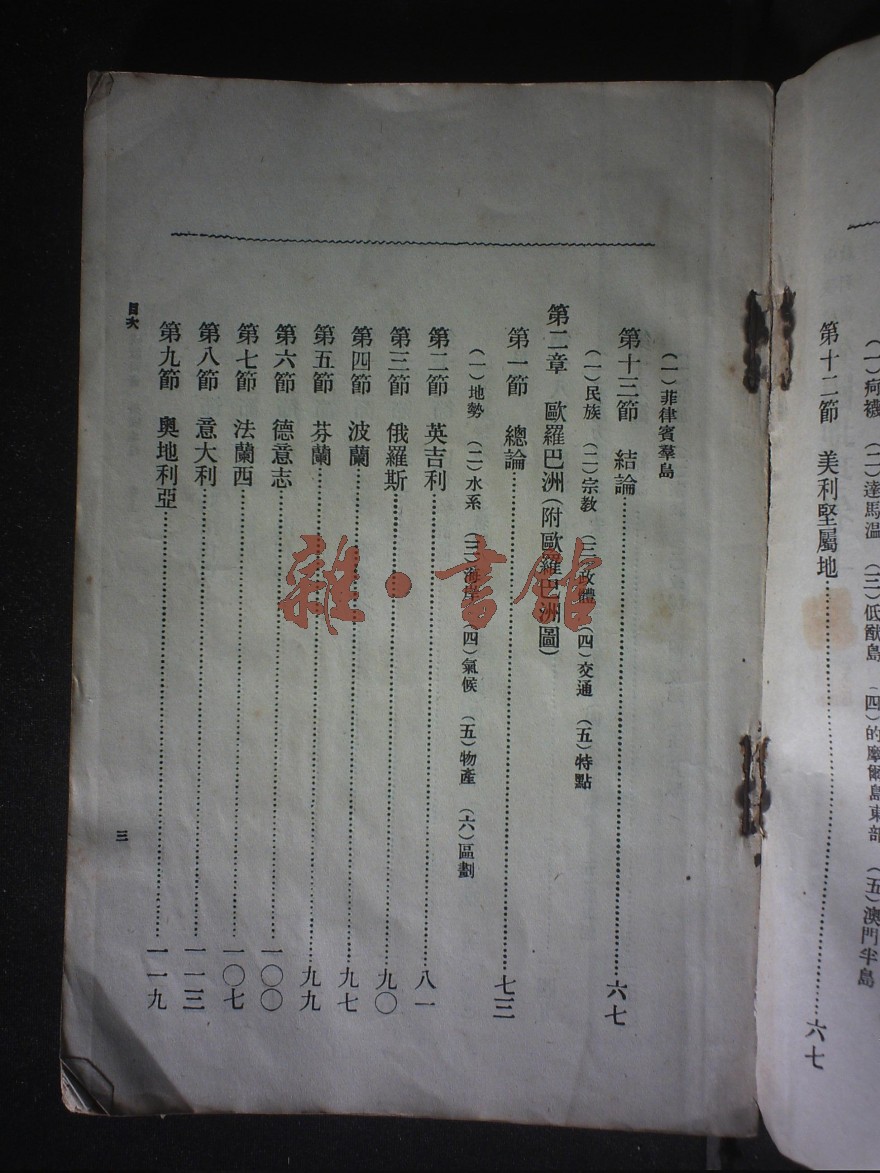 (一)荷襪 (二)達馬温 (三)低猷島 (四)的摩爾島東部 (五)澳門半島
第十二節 美利堅屬地……六七
(一)菲律賓羣島
第十三節 結論……六七
(一)民族 (二)宗教 (三)政體 (四)交通 (五)特點
第二章 歐羅巴洲(附歐羅巴洲圖)
第一節 總論……七三
(一)地勢 (二)水系 (三)海岸 (四)氣候 (五)物產 (六)區劃
第二節 英吉利……八一
第三節 俄羅斯……九〇
第四節 波蘭……九七
第五節 芬蘭……九九
第六節 德意志……一〇〇
第七節 法蘭西……一〇七
第八節 意大利……一一三
第九節 奧地利亞……一一九
目次
三
雜·書館